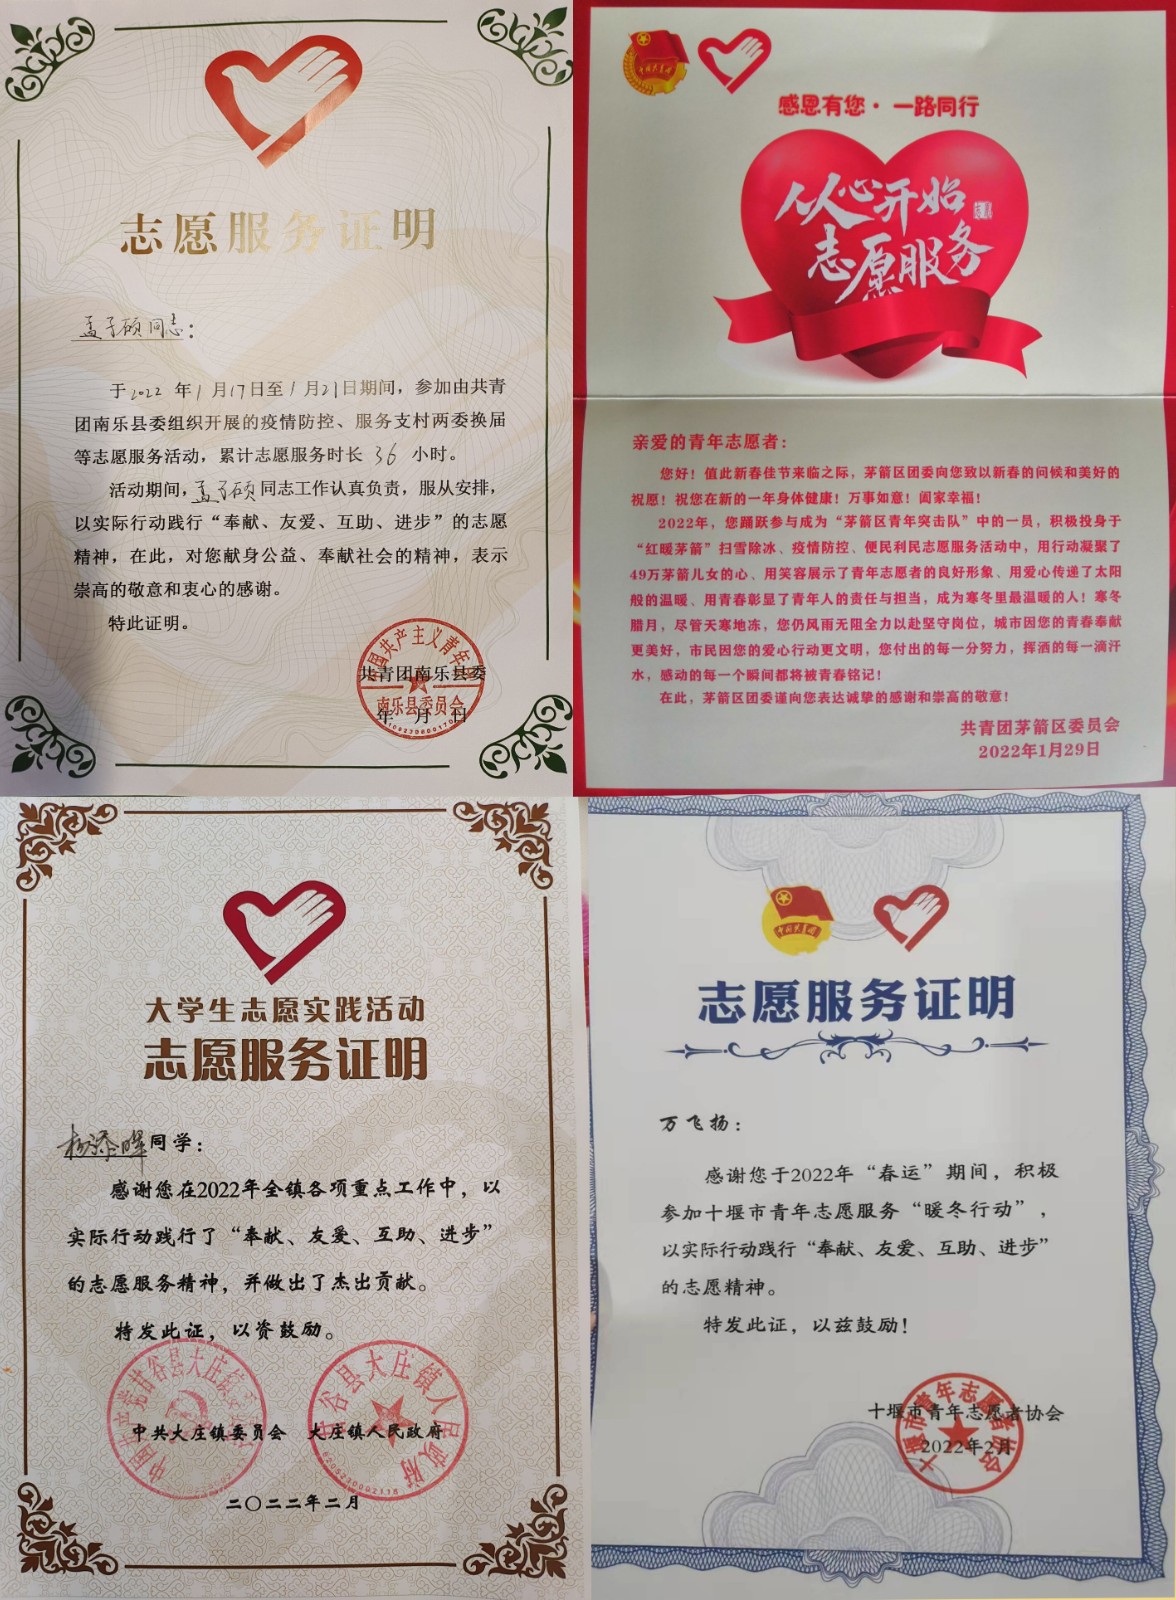 志愿服务证明
孟子硕同志：
于2022年1月17日至1月21日期间，参加由共青
团南乐县委组织开展的疫情防控、服务支村两委换届
等志愿服务活动，累计志愿服务时长 36 小时。
活动期间，孟子硕同志工作认真负责，服从安排，
以实际行动践行“奉献、友爱、互助、进步”的志愿
精神，在此，对您献身公益、奉献社会的精神，表示
崇高的敬意和衷心的感谢。
特此证明。
共青团南乐县委
年 月 日
南乐县委员会
感恩有您·一路同行
从心开始
志愿服务
亲爱的青年志愿者：
您好！值此新春佳节来临之际，茅箭区团委向您致以新春的问候和美好的
祝愿！祝您在新的一年身体健康！万事如意！阖家幸福！
2022年，您踊跃参与成为“茅箭区青年突击队”中的一员，积极投身于
“红暖茅箭”扫雪除冰、疫情防控、便民利民志愿服务活动中，用行动凝聚了
49万茅箭儿女的心、用笑容展示了青年志愿者的良好形象、用爱心传递了太阳
般的温暖、用青春彰显了青年人的责任与担当，成为寒冬里最温暖的人！寒冬
腊月，尽管天寒地冻，您仍风雨无阻全力以赴坚守岗位，城市因您的青春奉献
更美好，市民因您的爱心行动更文明，您付出的每一分努力，挥洒的每一滴汗
水，感动的每一个瞬间都将被青春铭记！
在此，茅箭区团委谨向您表达诚挚的感谢和崇高的敬意！
共青团茅箭区委员会
2022年1月29日
大学生志愿实践活动
志愿服务证明
杨添晖同学：
感谢您在2022年全镇各项重点工作中，以
实际行动践行了“奉献、友爱、互助、进步”
的志愿服务精神，并做出了杰出贡献。
特发此证，以资鼓励。
中共大庄镇委员会 大庄镇人民政府
二〇二二年二月
甘谷县大庄镇人民政府
中国共青团
志愿服务证明
万飞扬：
感谢您于2022年“春运”期间，积极
参加十堰市青年志愿服务“暖冬行动”，
以实际行动践行“奉献、友爱、互助、进步”
的志愿精神。
特发此证，以兹鼓励！
十堰市青年志愿者协会
2022年2月
十堰市青年志愿者协会